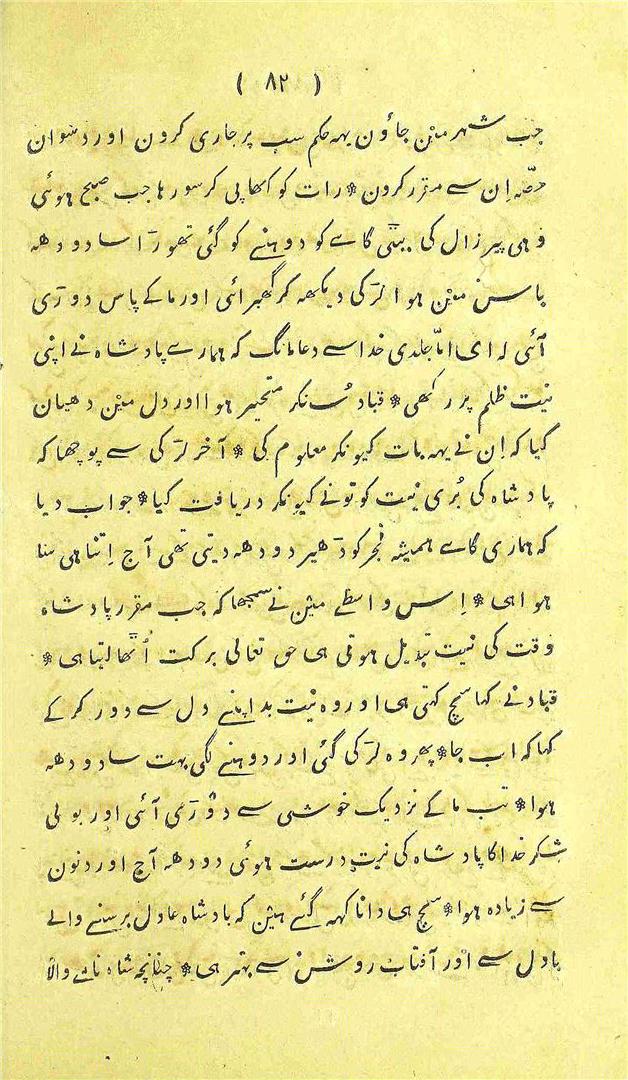 ( ۸۲ )
جب شہر مین جاؤن یہہ حکم سب پر جاری کرون اور دسوان
حصّہ اِن سے مقرر کرون * رات کو کھا پی کر سو رہا جب صبح ہوئی
وہی پیر زال کی بیٹی گاے کو دوہنے کو گئی تھورّا سا دودھہ
باسن مین ہوا لرّکی دیکھہ کر گھبرائی اور ما کے پاس دورّی
آئی کہ ای امّا جلدی خدا سے دعا مانگ کہ ہمارے پادشاہ نے اپنی
نیت ظلم پر رکھی * قباد سُنکر متحیر ہوا اور دل مین دھیان
کیا کہ اِن نے یہہ بات کیونکر معلوم کی * آخر لرّکی سے پوچھا کہ
پادشاہ کی بُری نیت کو تو نے کیونکر دریافت کیا * جواب دیا
کہ ہماری گاے ہمیشہ فجر کو ڈھیر دودھہ دیتی تھی آج اِتنا ہی سا
ہوا ہی * اِس واسطے مین نے سمجھا کہ جب مقرر پادشاہ
وقت کی نیت تبدیل ہوتی ہی حق تعالی برکت اُٹھا لیتا ہی *
قباد نے کہا سچ کہتی ہی اور وہ نیت بد اپنے دل سے دور کر کے
کہا کہ اب جا * پھر وہ لرّکی گئی اور دوہنے لگی بہت سا دودھہ
ہوا * تب ما کے نزدیک خوشی سے دورّی آئی اور بولی
شکر خدا کا پادشاہ کی نیت درست ہوئی دودھہ آج اور دنون
سے زیادہ ہوا * سچ ہی دانا کہہ گئے ہین کہ بادشاہ عادل برسنے والے
بادل سے اور آفتاب روشن سے بہتر ہی * چنانچہ شاہ نامے والا